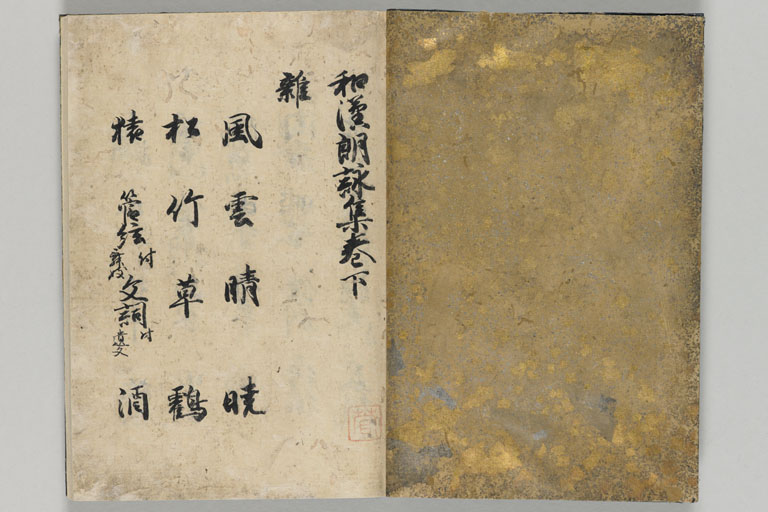 和漢朗詠集巻下
雜
風 雲 晴 暁
松 竹 草 鶴
猿 管絃付舞妓 文詞付遺文 酒